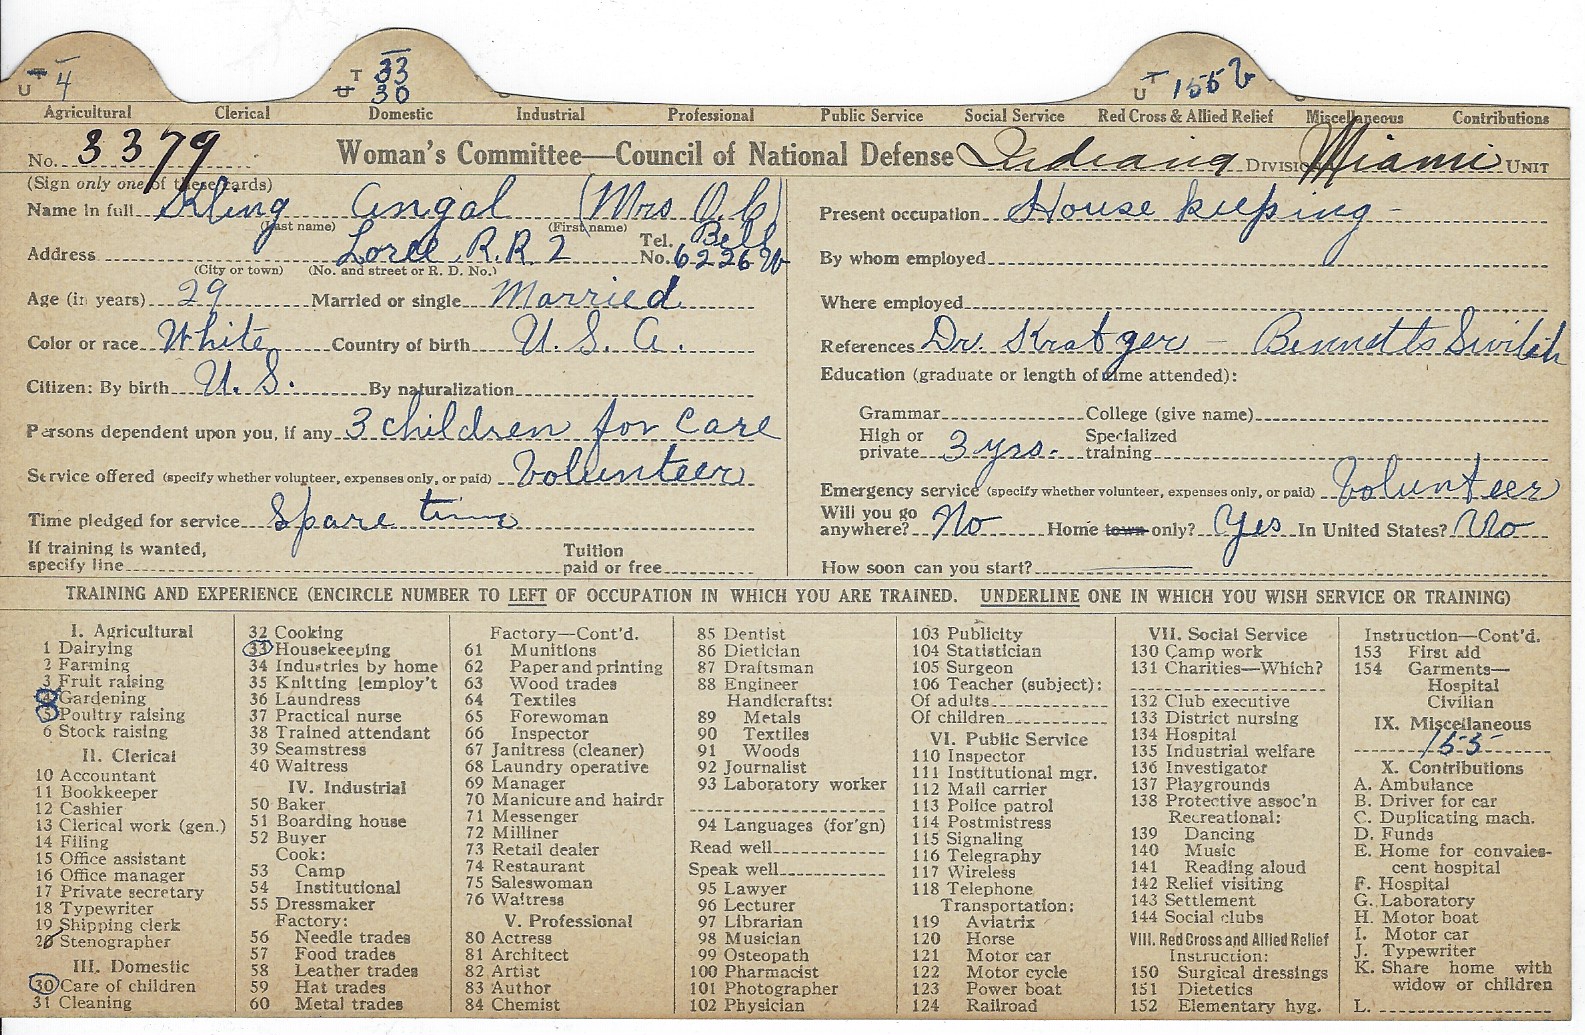 T
U 4
T 33
U 30
T
U 155 b
Agricultural Clerical Domestic Industrial Professional Public Service Social Service Red Cross & Allied Relief Miscellaneous Contributions
No. 3379 Woman's Committee—Council of National Defense Indiana Division Miami Unit
(Sign only one of these cards)
Name in full Kling Angal (Mrs O. C)
(Last name) (First name)
Address Loree R.R. 2 Tel. No. Bell 6226 W
(City or town) (No. and street or R. D. No.)
Age (in years) 29 Married or single Married
Color or race White Country of birth U. S. A.
Citizen: By birth U. S. By naturalization
Persons dependent upon you, if any 3 children for care
Service offered (specify whether volunteer, expenses only, or paid) Volunteer
Time pledged for service Spare time
If training is wanted, specify line Tuition paid or free
Present occupation House keeping -
By whom employed
Where employed
References Dr. Kratzer - Bennetts Switch
Education (graduate or length of time attended):
Grammar College (give name)
High or private 3 yrs. Specialized training
Emergency service (specify whether volunteer, expenses only, or paid) Volunteer
Will you go anywhere? No Home town only? Yes In United States? No
How soon can you start?
TRAINING AND EXPERIENCE (ENCIRCLE NUMBER TO LEFT OF OCCUPATION IN WHICH YOU ARE TRAINED. UNDERLINE ONE IN WHICH YOU WISH SERVICE OR TRAINING)
I. Agricultural
1 Dairying
2 Farming
3 Fruit raising
4 Gardening
5 Poultry raising
6 Stock raising
II. Clerical
10 Accountant
11 Bookkeeper
12 Cashier
13 Clerical work (gen.)
14 Filing
15 Office assistant
16 Office manager
17 Private secretary
18 Typewriter
19 Shipping clerk
20 Stenographer
III. Domestic
30 Care of children
31 Cleaning
32 Cooking
33 Housekeeping
34 Industries by home
35 Knitting [employ't
36 Laundress
37 Practical nurse
38 Trained attendant
39 Seamstress
40 Waitress
IV. Industrial
50 Baker
51 Boarding house
52 Buyer
Cook:
53 Camp
54 Institutional
55 Dressmaker
Factory:
56 Needle trades
57 Food trades
58 Leather trades
59 Hat trades
60 Metal trades
Factory—Cont'd.
61 Munitions
62 Paper and printing
63 Wood trades
64 Textiles
65 Forewoman
66 Inspector
67 Janitress (cleaner)
68 Laundry operative
69 Manager
70 Manicure and hairdr
71 Messenger
72 Milliner
73 Retail dealer
74 Restaurant
75 Saleswoman
76 Waitress
V. Professional
80 Actress
81 Architect
82 Artist
83 Author
84 Chemist
85 Dentist
86 Dietician
87 Draftsman
88 Engineer
Handicrafts:
89 Metals
90 Textiles
91 Woods
92 Journalist
93 Laboratory worker
94 Languages (for'gn)
Read well
Speak well
95 Lawyer
96 Lecturer
97 Librarian
98 Musician
99 Osteopath
100 Pharmacist
101 Photographer
102 Physician
103 Publicity
104 Statistician
105 Surgeon
106 Teacher (subject):
Of adults
Of children
VI. Public Service
110 Inspector
111 Institutional mgr.
112 Mail carrier
113 Police patrol
114 Postmistress
115 Signaling
116 Telegraphy
117 Wireless
118 Telephone
Transportation:
119 Aviatrix
120 Horse
121 Motor car
122 Motor cycle
123 Power boat
124 Railroad
VII. Social Service
130 Camp work
131 Charities—Which?
132 Club executive
133 District nursing
134 Hospital
135 Industrial welfare
136 Investigator
137 Playgrounds
138 Protective assoc'n
Recreational:
139 Dancing
140 Music
141 Reading aloud
142 Relief visiting
143 Settlement
144 Social clubs
VIII. Red Cross and Allied Relief
Instruction:
150 Surgical dressings
151 Dietetics
152 Elementary hyg.
Instruction—Cont'd.
153 First aid
154 Garments—
Hospital
Civilian
IX. Miscellaneous
155
X. Contributions
A. Ambulance
B. Driver for car
C. Duplicating mach.
D. Funds
E. Home for convales-
cent hospital
F. Hospital
G. Laboratory
H. Motor boat
I. Motor car
J. Typewriter
K. Share home with
widow or children
L.